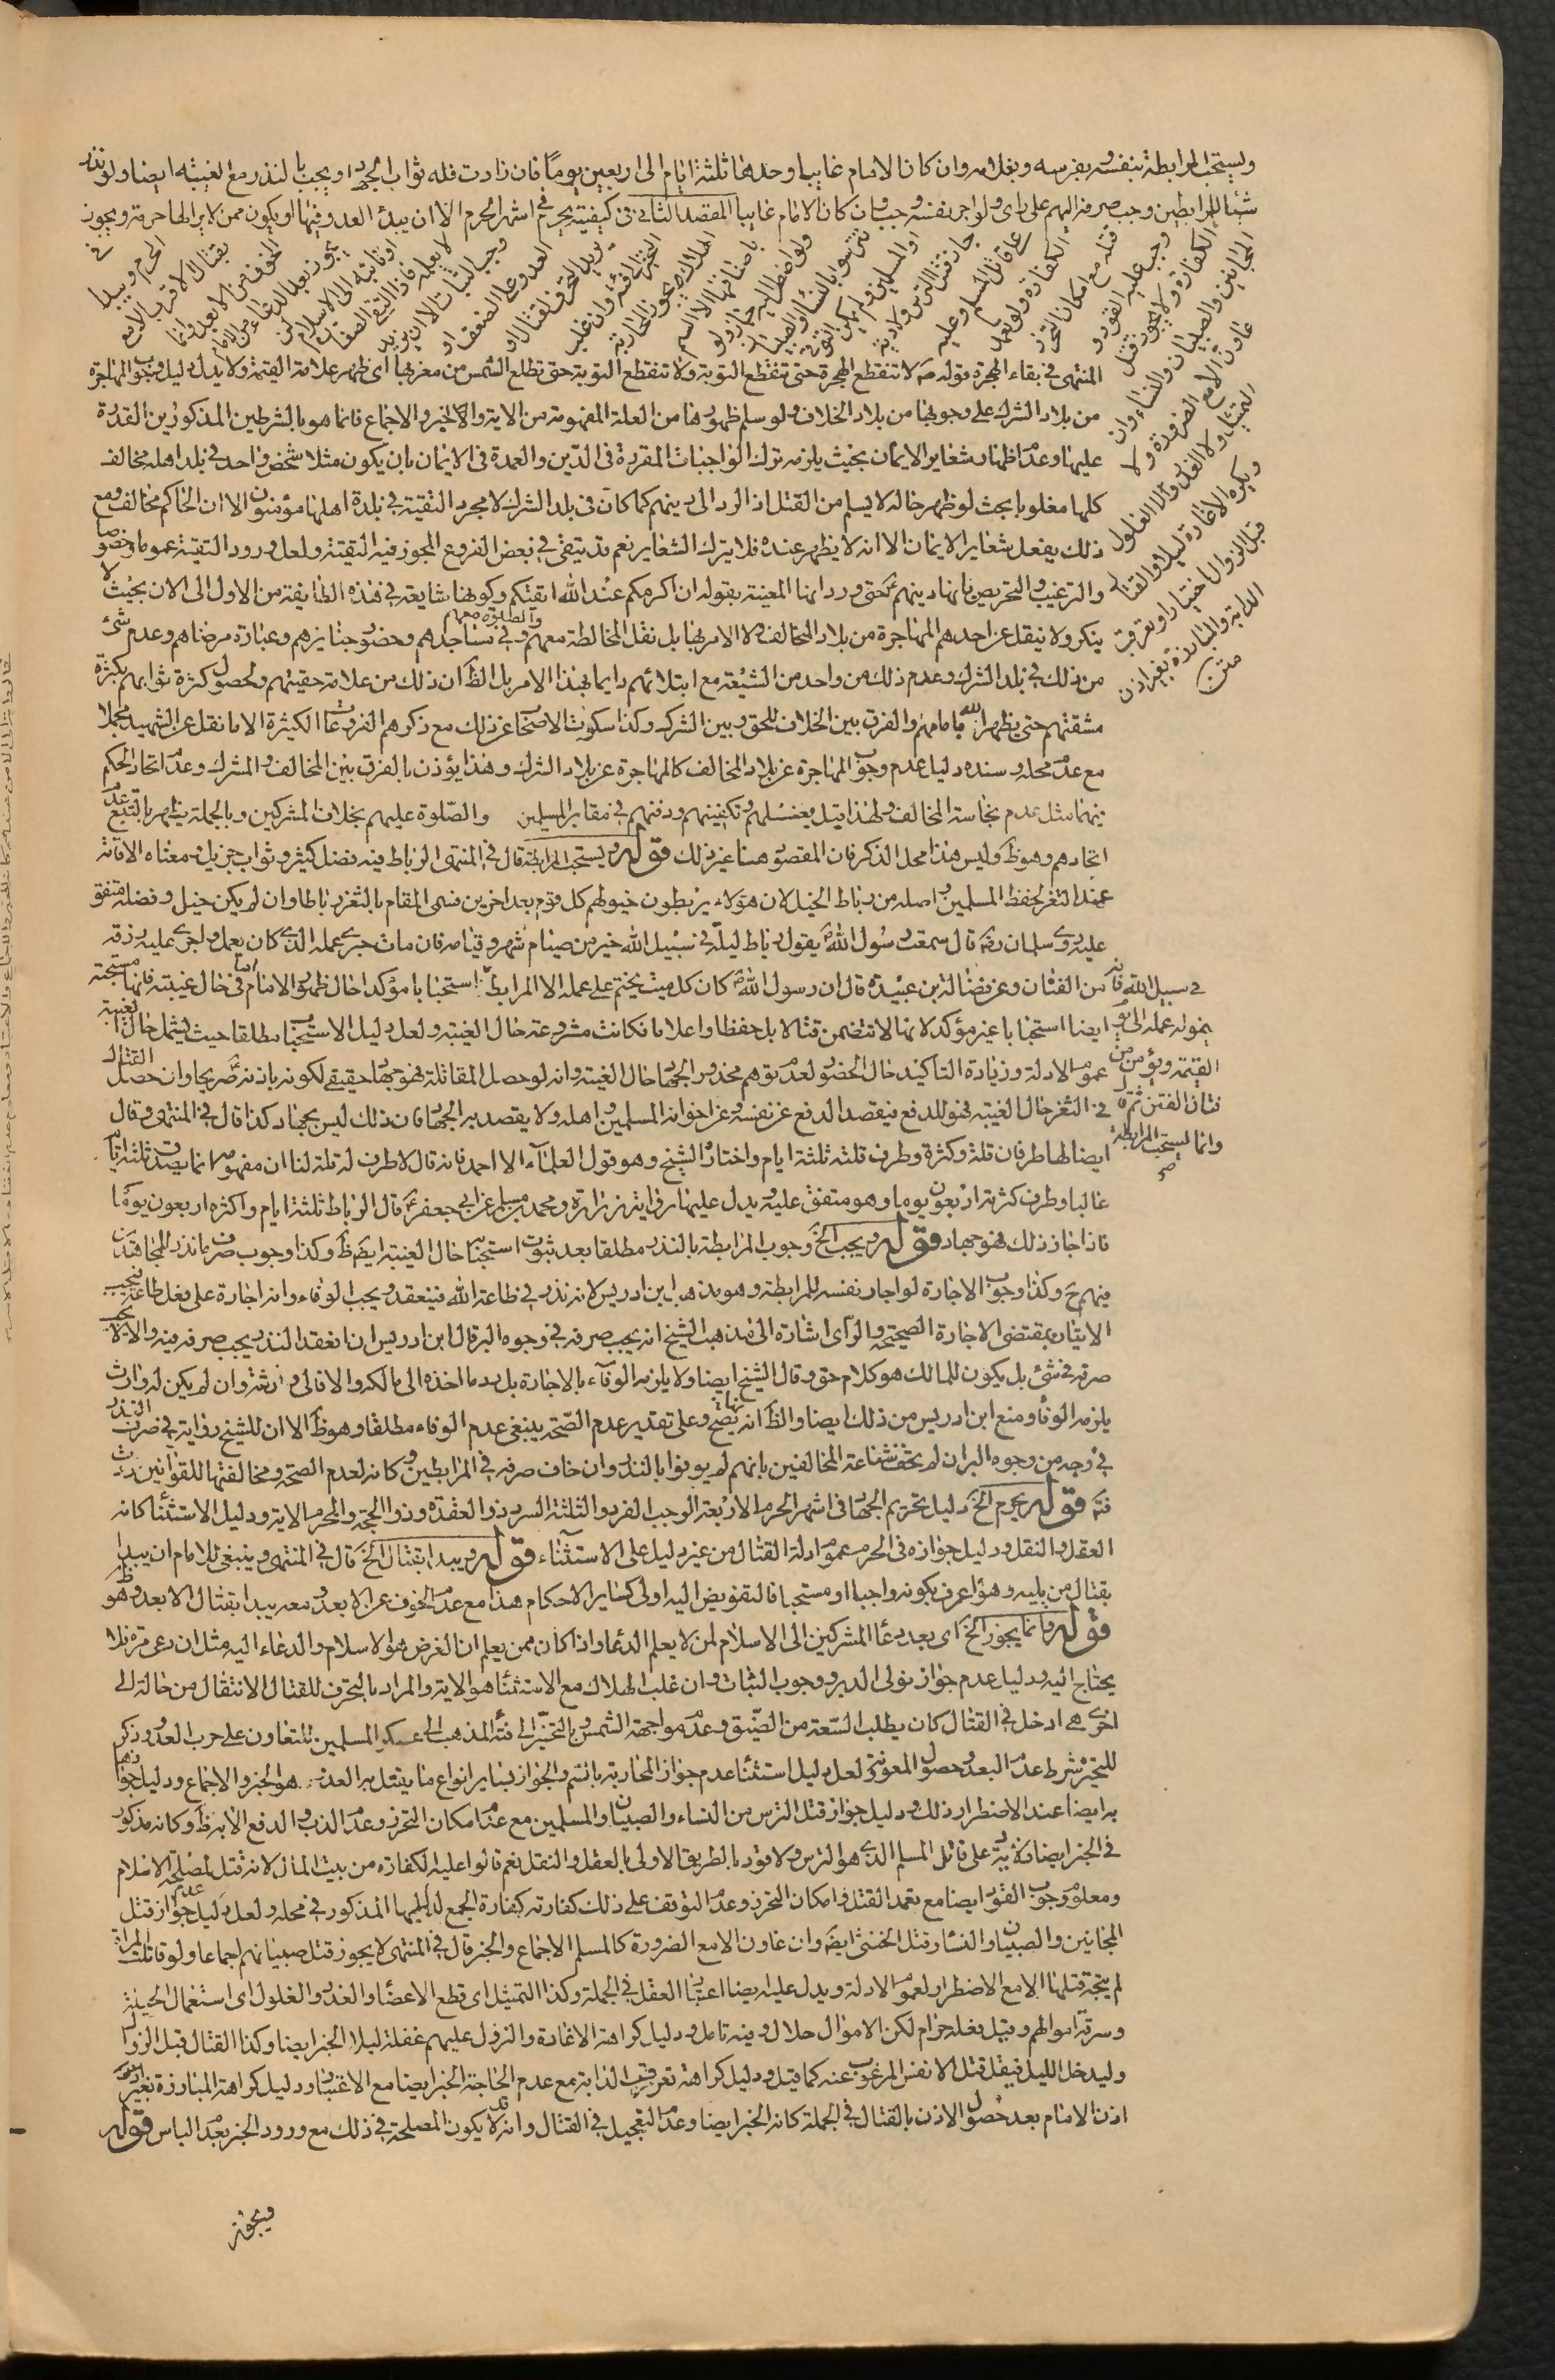 ويستحب المرابطة بنفسه وبفرسه وبغلامه وان كان الامام غايبا وحدها ثلثة ايام الى اربعين يوماً فان زادت فله ثواب الجهاد ويجب بالنذر مع الغيبة ايضا ولو نذر
شيئا للمرابطين وجب صرفه اليهم على راى ولو اجر نفسه وجب وان كان الامام غايبا المقصد الثانى فى كيفيته يحرم فى اشهر الحرم الا ان يبدئ العدو فيها او يكون ممن لا يرى لها حرمة ويجوز
فى
الحرم ويبدا
بقتال الاقرب الا مع
الخوف من الابعد وانما
يجوز بعد الدعاء من الامام
او نائبه الى الاسلام لمن
لا يعلمه فاذا التقى الصفان
وجب الثبات الا ان يزيد
العدو على الضعف او
يريد التحرف لقتال او
التحيز الى فئة وان غلب
الهلاك ويجوز المحاربة
باصنافها الا السم
ولو اضطر اليه جاز ولو
تترسوا بالنساء والصبيان
او المسلمين ولم يمكن التوقى
جاز قتل الترس ولا دية
على قاتل المسلم وعليه
الكفارة ولو تعمد
قتله مع امكان التحرز
وجب عليه القود و
الكفارة ولا يجوز قتل
المجانين والصبيان والنساء وان
عاونّ الا مع الضرورة ولا
التمثيل ولا الغدر ولا الغلول
ويكره الاغارة ليلا والقتال
قبل الزوال اختيارا وتعرقب
الدابة والمبارزة بغير اذن
متن
المنتهى فى بقاء الهجرة قوله ص لا تنقطع الهجرة حتى تنقطع التوبة ولا تنقطع التوبة حتى تطلع الشمس من مغربها اى ظهر علامة القيمة ولا يدل دليل وجوب المهاجرة
من بلاد الشرك على وجوبها من بلاد الخلاف ولو سلم ظهورها من العلة المفهومة من الاية والخبر والاجماع فانما هو بالشرطين المذكورين القدرة
عليها وعدم اظهار شعاير الايمان بحيث يلزمه ترك الواجبات المقررة فى الدّين والعمدة فى الايمان بان يكون مثلا شخص واحد فى بلد اهله مخالف
كلها مغلوبا بحيث لو ظهر حاله لا يسلم من القتل اذ الرد الى دينهم كما كان فى بلد الشرك لا مجرد التقية فى بلدة اهلها مؤمنون الا ان الحاكم مخالف ومع
ذلك يفعل شعاير الايمان الا انه لا يظهر عنده فلا يترك الشعاير نعم قد يتقى فى بعض الفروع المجوز فيه التقية ولعل ورود التقية عموما وخصوصا
والترغيب والتحريص بانها دينهم ع حتى ورد انها المعينة بقوله ان اكرمكم عند الله اتقيكم وكونها شايعة فى هذه الطايفة من الاول الى الان بحيث لا
ينكر ولا ينقل عن احدهم المهاجرة من بلاد المخالف ولا الامر بها بل نقل المخالطة معهم والصلوة معهم وفى مساجدهم وحضور جنايزهم وعيادة مرضاهم وعدم شئ
من ذلك فى بلد الشرك وعدم ذلك من واحد من الشيعة مع ابتلائهم دايما بهذا الامر بل الظ ان ذلك من علامة حقيتهم ولحصول كثرة ثوابهم بكثرة
مشقتهم حتى يظهر الله بامامهم والفرق بين الخلاف للحق وبين الشرك وكذا سكوت الاصحاب عن ذلك مع ذكرهم الفروعات الكثيرة الا ما نقل عن الشهيد مجملا
مع عدم محله وسنده دليل عدم وجوب المهاجرة عن بلاد المخالف كالمهاجرة عن بلاد الشرك وهذا يؤذن بالفرق بين المخالف والمشرك وعدم اتحاد الحكم
بينهما مثل عدم نجاسة المخالف ولهذا قيل بغسلهم وتكفينهم ودفنهم فى مقابر المسلمين والصّلوة عليهم بخلاف المشركين وبالجملة يظهر بالتتبع عدم
اتحادهم وهو ظ وليس هذا محل الذكر فان المقصود هنا غير ذلك قوله ويستحب المرابطة قال فى المنتهى الرباط فيه فضل كثير وثواب جزيل ومعناه الاقامة
عند الثغر لحفظ المسلمين واصله من رباط الخيل لان هؤلاء يربطون خيولهم كل قوم بعد اخرين فسمى المقام بالثغر رباطا وان لم يكن خيل وفضله متفق
عليه روى سلمان رض قال سمعت رسول الله ص يقول رباط ليلة فى سبيل الله خير من صيام شهر وقيامه فان مات جرى عمله الذى كان يعمل واجرى عليه رزقه
وامن الفتان وعن فضالة بن عبيدة قال ان رسول الله ص كان كل ميت يختم على عمله الا المرابط استحبابا مؤكدا حال ظهور الامام اما فى حال غيبته فانها مستحبة
فى سبيل الله فانه
ينمو له عمله الى يوم
القيمة ويؤمن من
فتان الفتن ثم قال
وانما يستحب المرابطة
صح
ايضا استحبابا غير مؤكد لانها لا تتضمن قتالا بل حفظا واعلاما فكانت مشروعة حال الغيبة ولعل دليل الاستحباب مطلقا حيث يشمل حال الغيبة
عموم الادلة وزيادة التاكيد حال الحضور لعدم توهم محذور الجهاد حال الغيبة وانه لو حصل المقاتلة فهو جهاد حقيقى لكونه باذنه ع صريحا وان حصل القتال
فى الثغر حال الغيبة فهو للدفع فيقصد الدفع عن نفسه وعن اخوانه المسلمين واهله ولا يقصد به الجهاد فان ذلك ليس بجهاد كذا قال فى المنتهى وقال
ايضا لها طرفان قلة وكثرة وطرف قلته ثلثة ايام واختاره الشيخ وهو قول العلماء الا احمد فانه قال لا طرف له قلة لنا ان مفهومه انما يصدق بثلثة ايام
غالبا وطرف كثرته اربعون يوما وهو متفق عليه ويدل عليها رواية زرارة ومحمد بن مسلم عن ابى جعفر ع قال الرباط ثلثة ايام واكثره اربعون يومًا
فاذا جاز ذلك فهو جهاد قوله ويجب الخ وجوب المرابطة بالنذر مطلقا بعد ثبوت استحبابه حال الغيبة ايضا ظ وكذا وجوب صرف ما نذر للمجاهدين
فيهم ح وكذا وجوب الاجارة لو اجار نفسه للمرابطة وهو مذهب ابن ادريس لانه نذر فى طاعة الله فينعقد ويجب الوفاء وانه اجارة على فعل طاعة فيجب
الاتيان بمقتضى الاجارة الصحيحة والراى اشارة الى مذهب الشيخ انه يجب صرفه فى وجوه البر قال ابن ادريس ان انعقد النذر يجب صرفه فيه والا لا يجب
صرفه فى شئ بل يكون للمالك هو كلام حق وقال الشيخ ايضا ولا يلزمه الوفاء بالاجارة بل يرد ما اخذه الى مالكه والا فالى ورثته وان لم يكن له وارث
يلزمه الوفاء ومنع ابن ادريس من ذلك ايضا والظ انه يصح وعلى تقدير عدم الصّحة ينبغى عدم الوفاء مطلقا وهو ظ الا ان للشيخ رواية فى صرف النذر
فى وجه من وجوه البر ان لم يخف شناعة المخالفين بانهم لم يوفوا بالنذر وان خاف صرفه فى المرابطين وكانه لعدم الصحة ومخالفتها للقوانين
قوله يحرم الخ دليل تحريم الجهاد فى اشهر الحرم الاربعة الرجب الفرد والثلثة السرد ذو العقدة وذو الحجة والمحرم الاية ودليل الاستثناء كانه
العقل والنقل ودليل جوازه فى الحرم عموم ادلة القتال من غير دليل على الاستثناء قوله ويبدا بقتال الخ قال فى المنتهى وينبغى للامام ان يبدا
بقتال من يليه وهو اعرف بكونه واجبا او مستحبا فالتفويض اليه اولى كساير الاحكام هذا مع عدم الخوف عن الابعد ومعه يبدا بقتال الابعد وهو ظ
قوله وانما يجوز الخ اى بعد دعاء المشركين الى الاسلام لمن لا يعلم الدعاء واذا كان ممن يعلم ان الغرض هو الاسلام والدعاء اليه مثل ان دعى مرة فلا
يحتاج اليه ودليل عدم جواز تولى الدبر ووجوب الثبات وان غلب الهلاك مع الاستثناء هو الاية والمراد بالتحرف للقتال الانتقال من حالة الى
اخرى هى ادخل فى القتال كان يطلب السّعة من الضّيق وعدم مواجهة الشمس وبالتحيّز الى فئة المذهب الى عسكر المسلمين للتعاون على حرب العدو وذكر
للتحيز شرط عدم البعد وحصول المعونة لعل دليل استثناء عدم جواز المحاربة بالسم والجواز بساير انواع ما يقتل به العدو هو الخبر والاجماع ودليل جوازها
به ايضا عند الاضطرار ذلك ودليل جواز قتل الترس من النساء والصبيان والمسلمين مع عدم امكان التحرز وعدم الذب والدفع الا به ظ وكانه مذكور
فى الخبر ايضا ولا دية على قاتل المسلم الذى هو الترس ولا قود بالطريق الاولى بالعقل والنقل نعم قالوا عليه الكفارة من بيت المال لانه قتل لمصلحة الاسلام
ومعلوم وجوب القود ايضا مع تعمد القتل وامكان التحرز وعدم التوقف على ذلك كفارته كفارة الجمع لدليلهما المذكور فى محله ولعل دليل عدم جواز قتل
المجانين والصبيان والنساء وقتل الخنثى ايضا وان عاونّ الا مع الضرورة كالمسلم الاجماع والخبر قال فى المنتهى لا يجوز قتل صبيانهم اجماعا ولو قاتلت المراة
لم يتجه قتلها الا مع الاضطرار لعموم الادلة ويدل عليه ايضا اعتبار العقل فى الجملة وكذا التمثيل اى قطع الاعضاء والغدر والغلول اى استعمال الحيلة
وسرقة اموالهم وقيل فعله حرام لكن الاموال حلال وفيه تامل ودليل كراهة الاغارة والنزول عليهم غفلة ليلا الخبر ايضا وكذا القتال قبل الزوال
وليدخل الليل فيقل قتل الانفس المرغوب عنه كما قيل ودليل كراهة تعرقب الدابة مع عدم الحاجة الخبر ايضا مع الاعتبار ودليل كراهة المبارزة بغير
اذن الامام بعد حصول الاذن بالقتال فى الجملة كانه الخبر ايضا وعدم التعجيل فى القتال وانه قد لا يكون المصلحة فى ذلك مع ورود الخبر بعدم الباس قوله
ويجوز